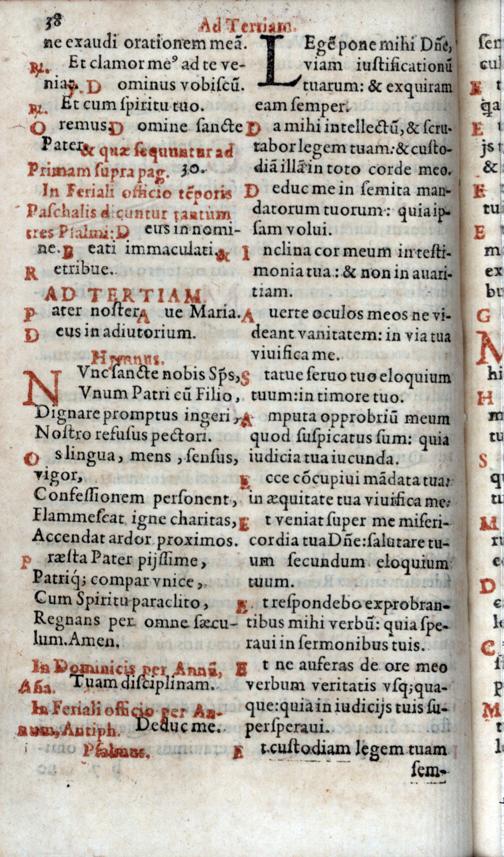 38
Ad Tertiam.
ne exaudi orationem meã.
℟. Et clamor meꝰ ad te ve-
niat. D ominus vobiscũ.
℟. Et cum spiritu tuo.
O remus. D omine sancte
Pater & quæ sequuntur ad
Primam supra pag. 30.
In Feriali officio tẽporis
Paschalis dicuntur tantum
tres Psalmi: D eus in nomi-
ne. B eati immaculati. &
R etribue.
AD TERTIAM.
P ater noster A ue Maria.
D eus in adiutorium.
Hymnus.
NVnc sancte nobis Sp̃s,
Vnum Patri cũ Filio,
Dignare promptus ingeri,
Nostro refusus pectori.
O s lingua, mens, sensus,
vigor,
Confessionem personent,
Flammescat igne charitas,
Accendat ardor proximos.
P ræsta Pater pijssime,
Patriq; compar vnice,
Cum Spiritu paraclito,
Regnans per omne sæcu-
lum. Amen.
In Dominicis per Annũ,
Aña. Tuam disciplinam.
In Feriali officio per An-
num, Antiph. Deduc me.
Psalmus.
LEgẽ pone mihi Dñe,
viam iustificationũ
tuarum: & exquiram
eam semper.
D a mihi intellectũ, & scru-
tabor legem tuam: & custo-
diã illã in toto corde meo.
D educ me in semita man-
datorum tuorum: quia ip-
sam volui.
I nclina cor meum in testi-
monia tua: & non in auari-
tiam.
A uerte oculos meos ne vi-
deant vanitatem: in via tua
viuifica me.
S tatue seruo tuo eloquium
tuum: in timore tuo.
A mputa opprobriũ meum
quod suspicatus sum: quia
iudicia tua iucunda.
E cce cõcupiui mãdata tua:
in æquitate tua viuifica me.
E t veniat super me miseri-
cordia tua Dñe: salutare tu-
um secundum eloquium
tuum.
E t respondebo exprobran-
tibus mihi verbũ: quia spe-
raui in sermonibus tuis.
E t ne auferas de ore meo
verbum veritatis vsq; qua-
que: quia in iudicijs tuis su-
persperaui.
E t custodiam legem tuam
sem-